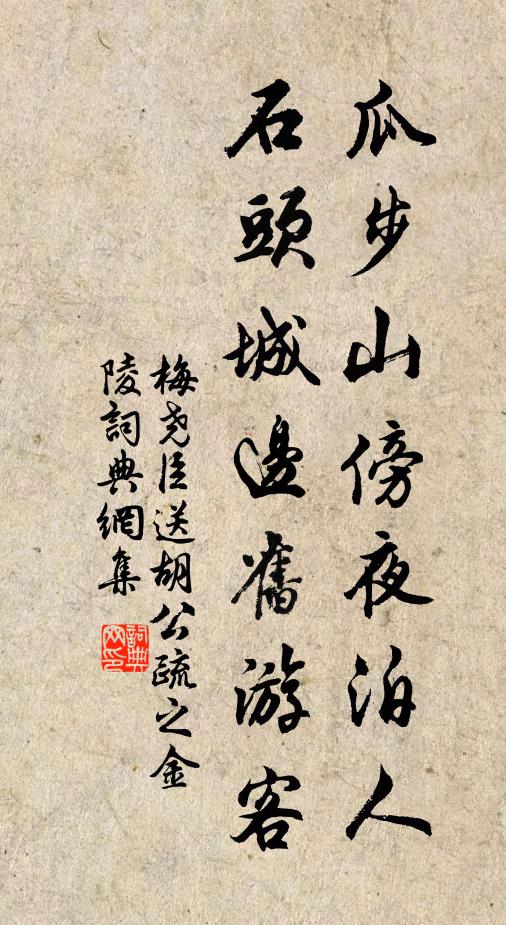 瓜步山傍夜泊人
石頭城邊舊游客
梅堯臣送胡公疏之金
陵詞典網集
詞典
网印